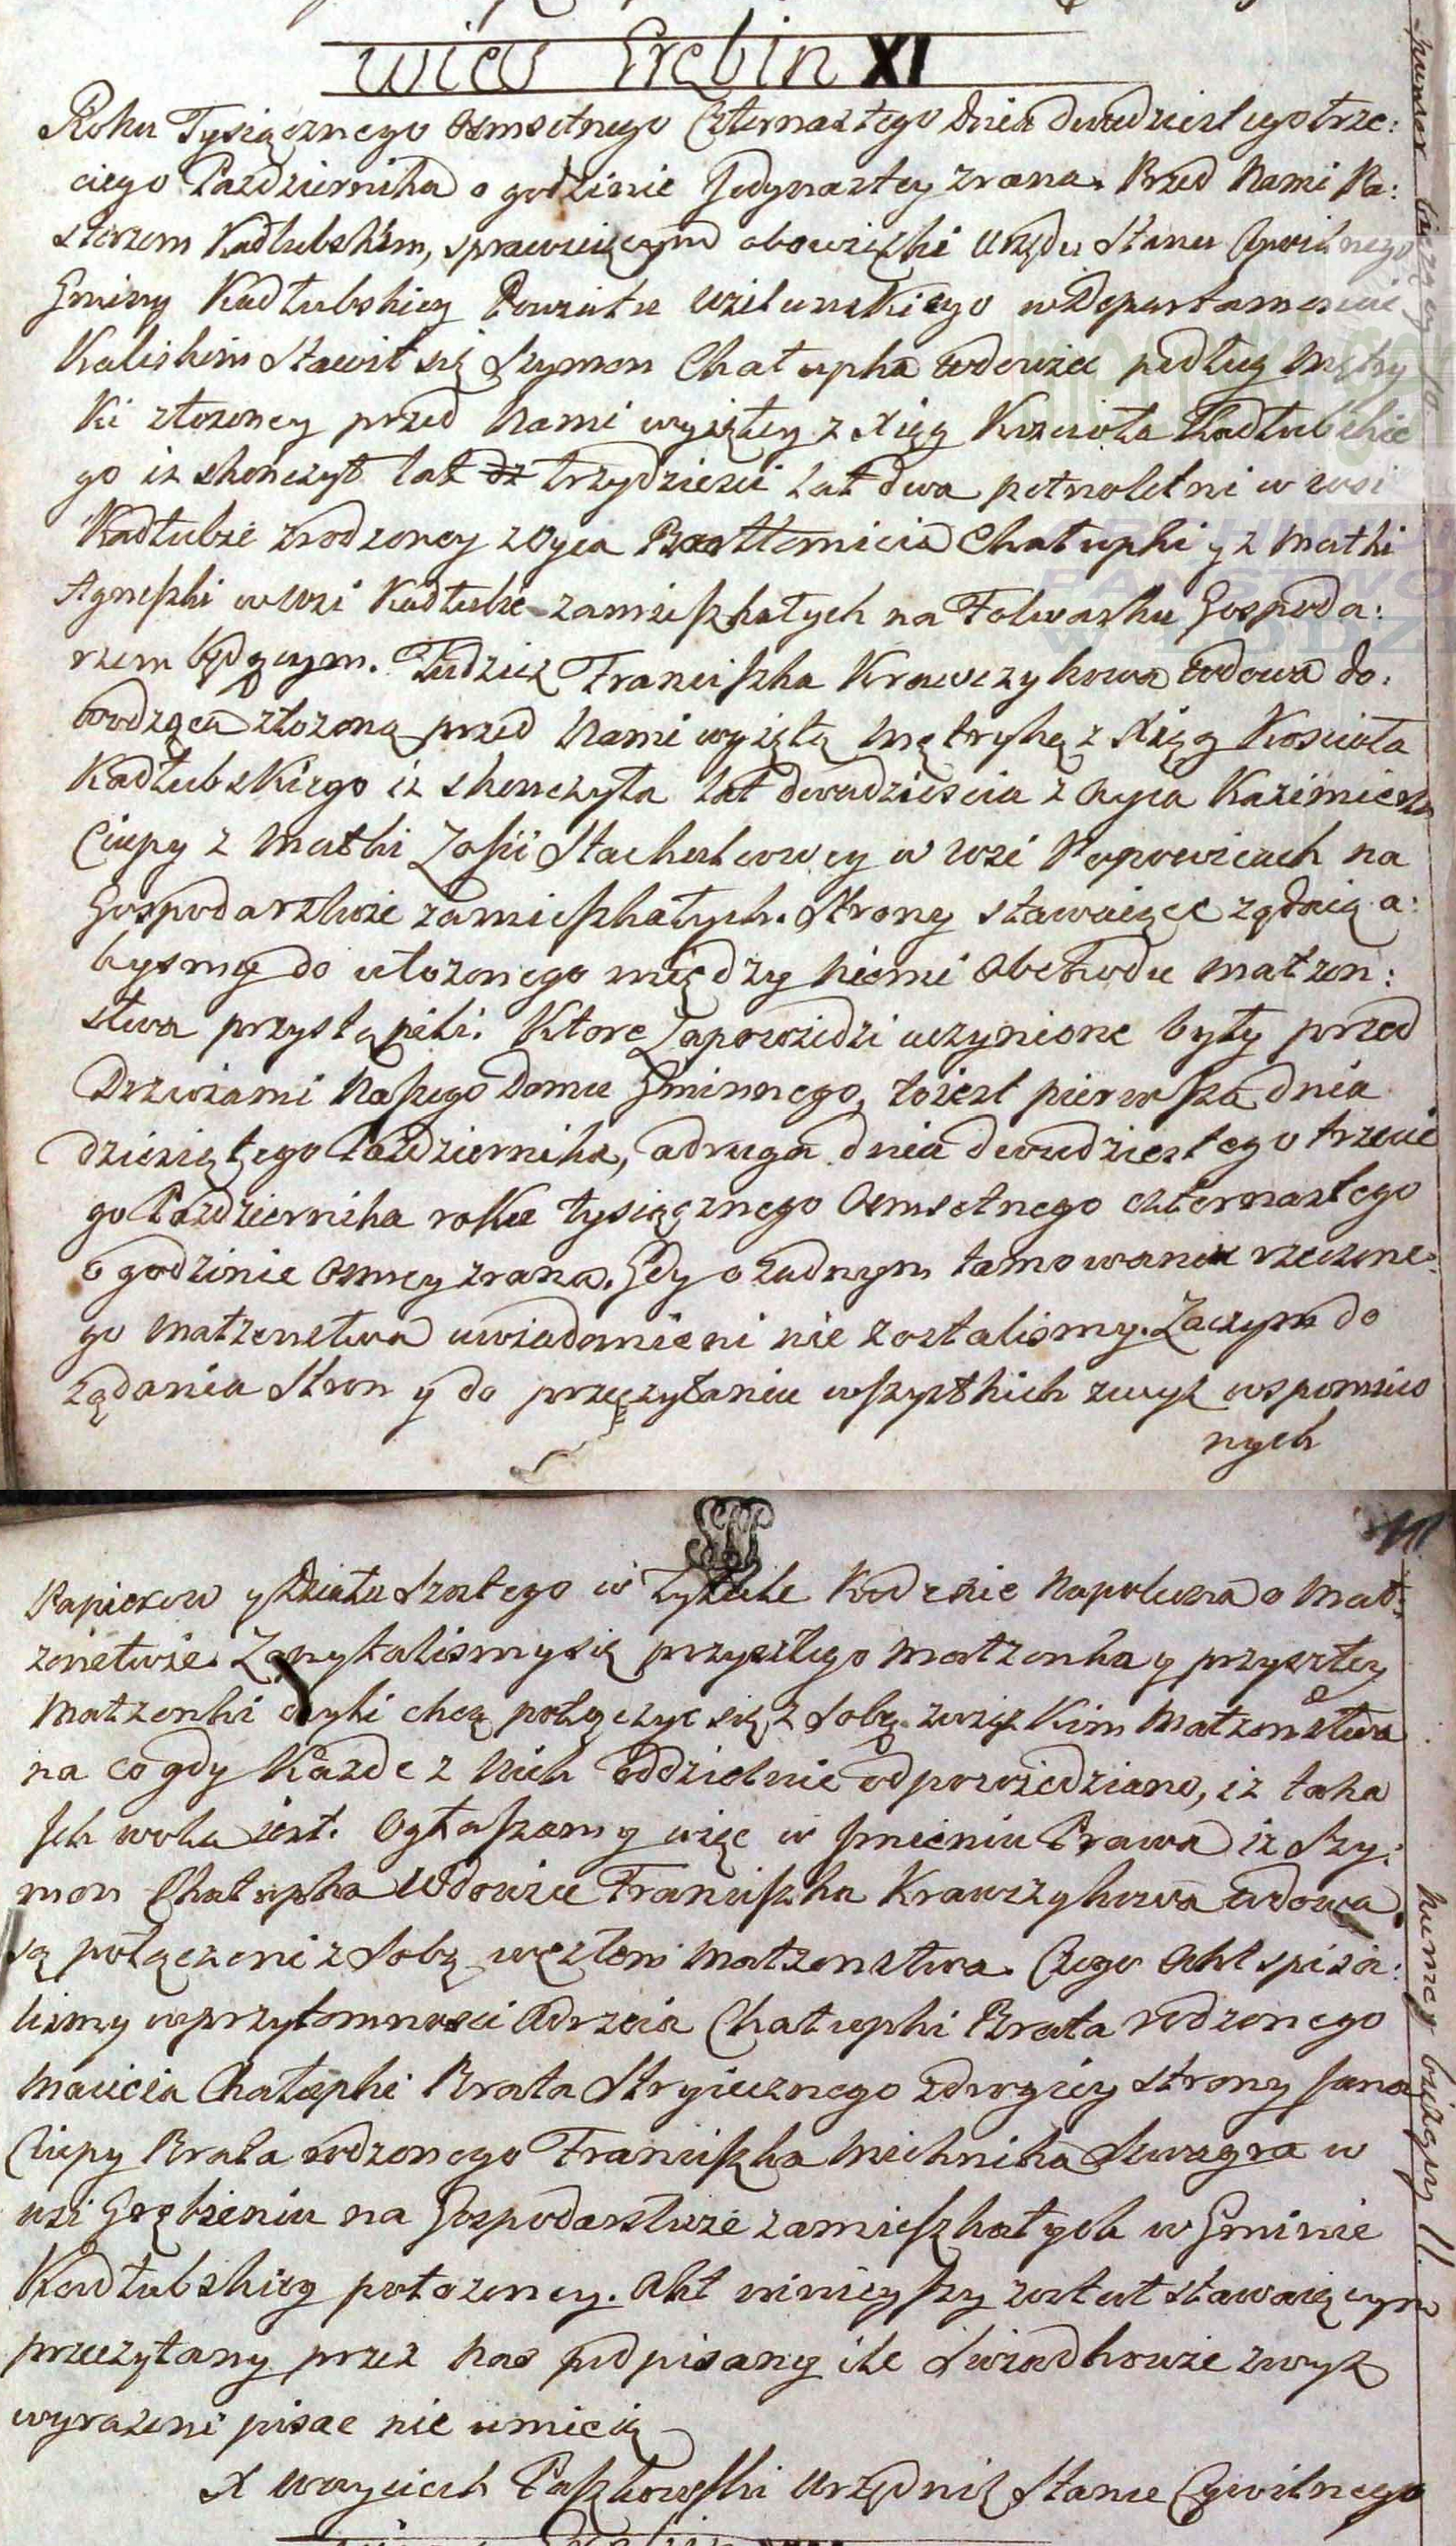 wieś Grębin XI
Roku Tysiącznego Osmsetnego Czternastego Dnia dwudziestego trze:
ciego Pazdziernika o godzinie Jedynastey zrana. Przed Nami Pa:
sterzem Kadłubskim, sprawuiącym obowiązki Urzędu Stanu Cywilnego
Gminy Kadłubskiey Powiatu Wielunskiego w Departamencie
Kaliskim Stawił się Szymon Chałupka Wdowiec podług Metry
ki złozoney przed Nami wyiętey z Xiąg Kościoła Kadłubskie
go iz skonczył lat dz trzydziesci lat dwa petnoletni w wsi
Kadłubie zrodzoney z Oyca Bartłomieia Chałupki y z Matki
Agneszki w wsi Kadłubie zamieszkałych na Folwarku Gospoda:
rzem będącym. Tudziez Franciszka Krawczykowa wdowa do:
wodząca złozoną przed Nami wyiętą Metrykę z Xiąg Kosciola
Kadłubskiego iz skonczyła lat dwadziescia z Oyca Kazimierza
Ciupy z Matki Zofii Stachulowey w wsi Popowicach na
Gospodarstwie zamieszkałych. Strony stawaiące ządaią a:
bysmy do ułozonego między niemi Obchodu matzen:
stwa przystąpili. Ktore Zapowiedzi uczynione były przed
Drzwiami Naszego Domu Gminnego, to iest pierwsza dnia
dziesiątego Pazdziernika, a druga dnia dwudziestego trzecie
go Pazdziernika roku tysiącznego Osmsetnego czternastego
o godzinie Osmey zrana. Gdy o zadnym tamowaniu rzeczone:
go matzenstwa uwiadomieni nie zostalismy. Zaczym do
ządania Stron y do przeczytaniu wszystkich zwyz wspomnio
nych
11
Papierow y Działu Szostego w Tytule Kodexie Napoleona o Mał:
zenstwie. Zapytalismy się przyszłego matzonka y przyszłey
Matzonki czyli chcą połączyc się z Sobą związkim Matzenstwa
na co gdy Kazde z Nich oddzielnie odpowiedziano, iz taka
Ich wola iest. Ogłaszamy więc w Imieniu Prawa iz Szy:
mon Chałupka Wdowiec Franciszka Krawczykowa wdowa
są połączeni z Sobą węzłem Matzenstwa. Czego Akt spisa:
lismy w przytomnosci Adrzeia Chałupki Brata rodzonego
Macieia Chałupki Brata Stryiecznego z drugiey strony Jana
Ciupy Brata rodzonego Franciszka Michnika Szwagra w
wsi Grębieniu na Gospodarstwie zamieszkałych w Gminie
Kadłubskiey połozoney. Akt ninieyszy został stawaiącym
przeczytany przez Nas podpisany ile Swiadkowie zwyz
wyrazeni pisac nie umieią
X Woyciech Paszkowski Urzędnik Stanu Cywilnego
numer biezący 10
numer biezący 11.
ARCHIWUM
PAŃSTWO
W ŁODZI